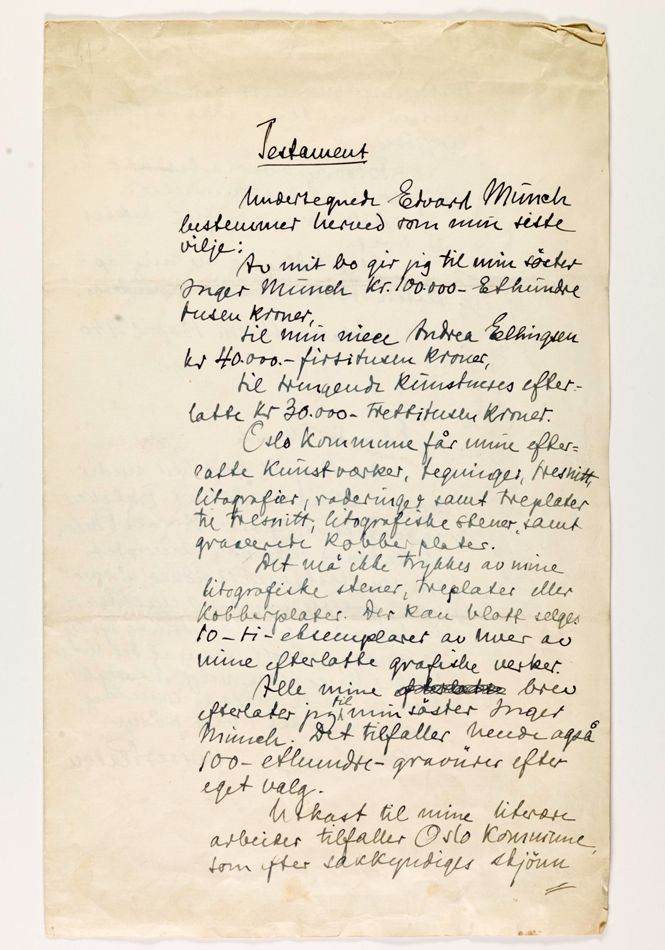 Testament
Undertegnede Edvard Munch
bestemmer herved som min siste
vilje:
Av mit bo gir jeg til min söster
Inger Munch kr. 100.000- Ethundre
tusen kroner,
til min niece Andrea Ellingsen
kr 40.000.- firtitusen kroner,
til trengende kunstneres efter-
latte kr 30.000- Trettitusen kroner.
Oslo kommune får mine efter=
latte kunstværker, tegninger, tresnitt,
litografier, raderinger samt treplater
til tresnitt, litografiske stener, samt
graverede kobberplater.
Det må ikke trykkes av mine
litografiske stener, treplater eller
kobberplater. Der kan blott selges
10-ti-eksemplarer av hver av
mine efterlatte grafiske verker.
Alle mine efterlatte brev
efterlater jeg til min söster Inger
Munch. Det tilfaller hende også
100-ethundre-gravürer efter
eget valg.
Utkast til mine literære
arbeider tilfaller Oslo kommune,
som efter sakkyndiges skjönn